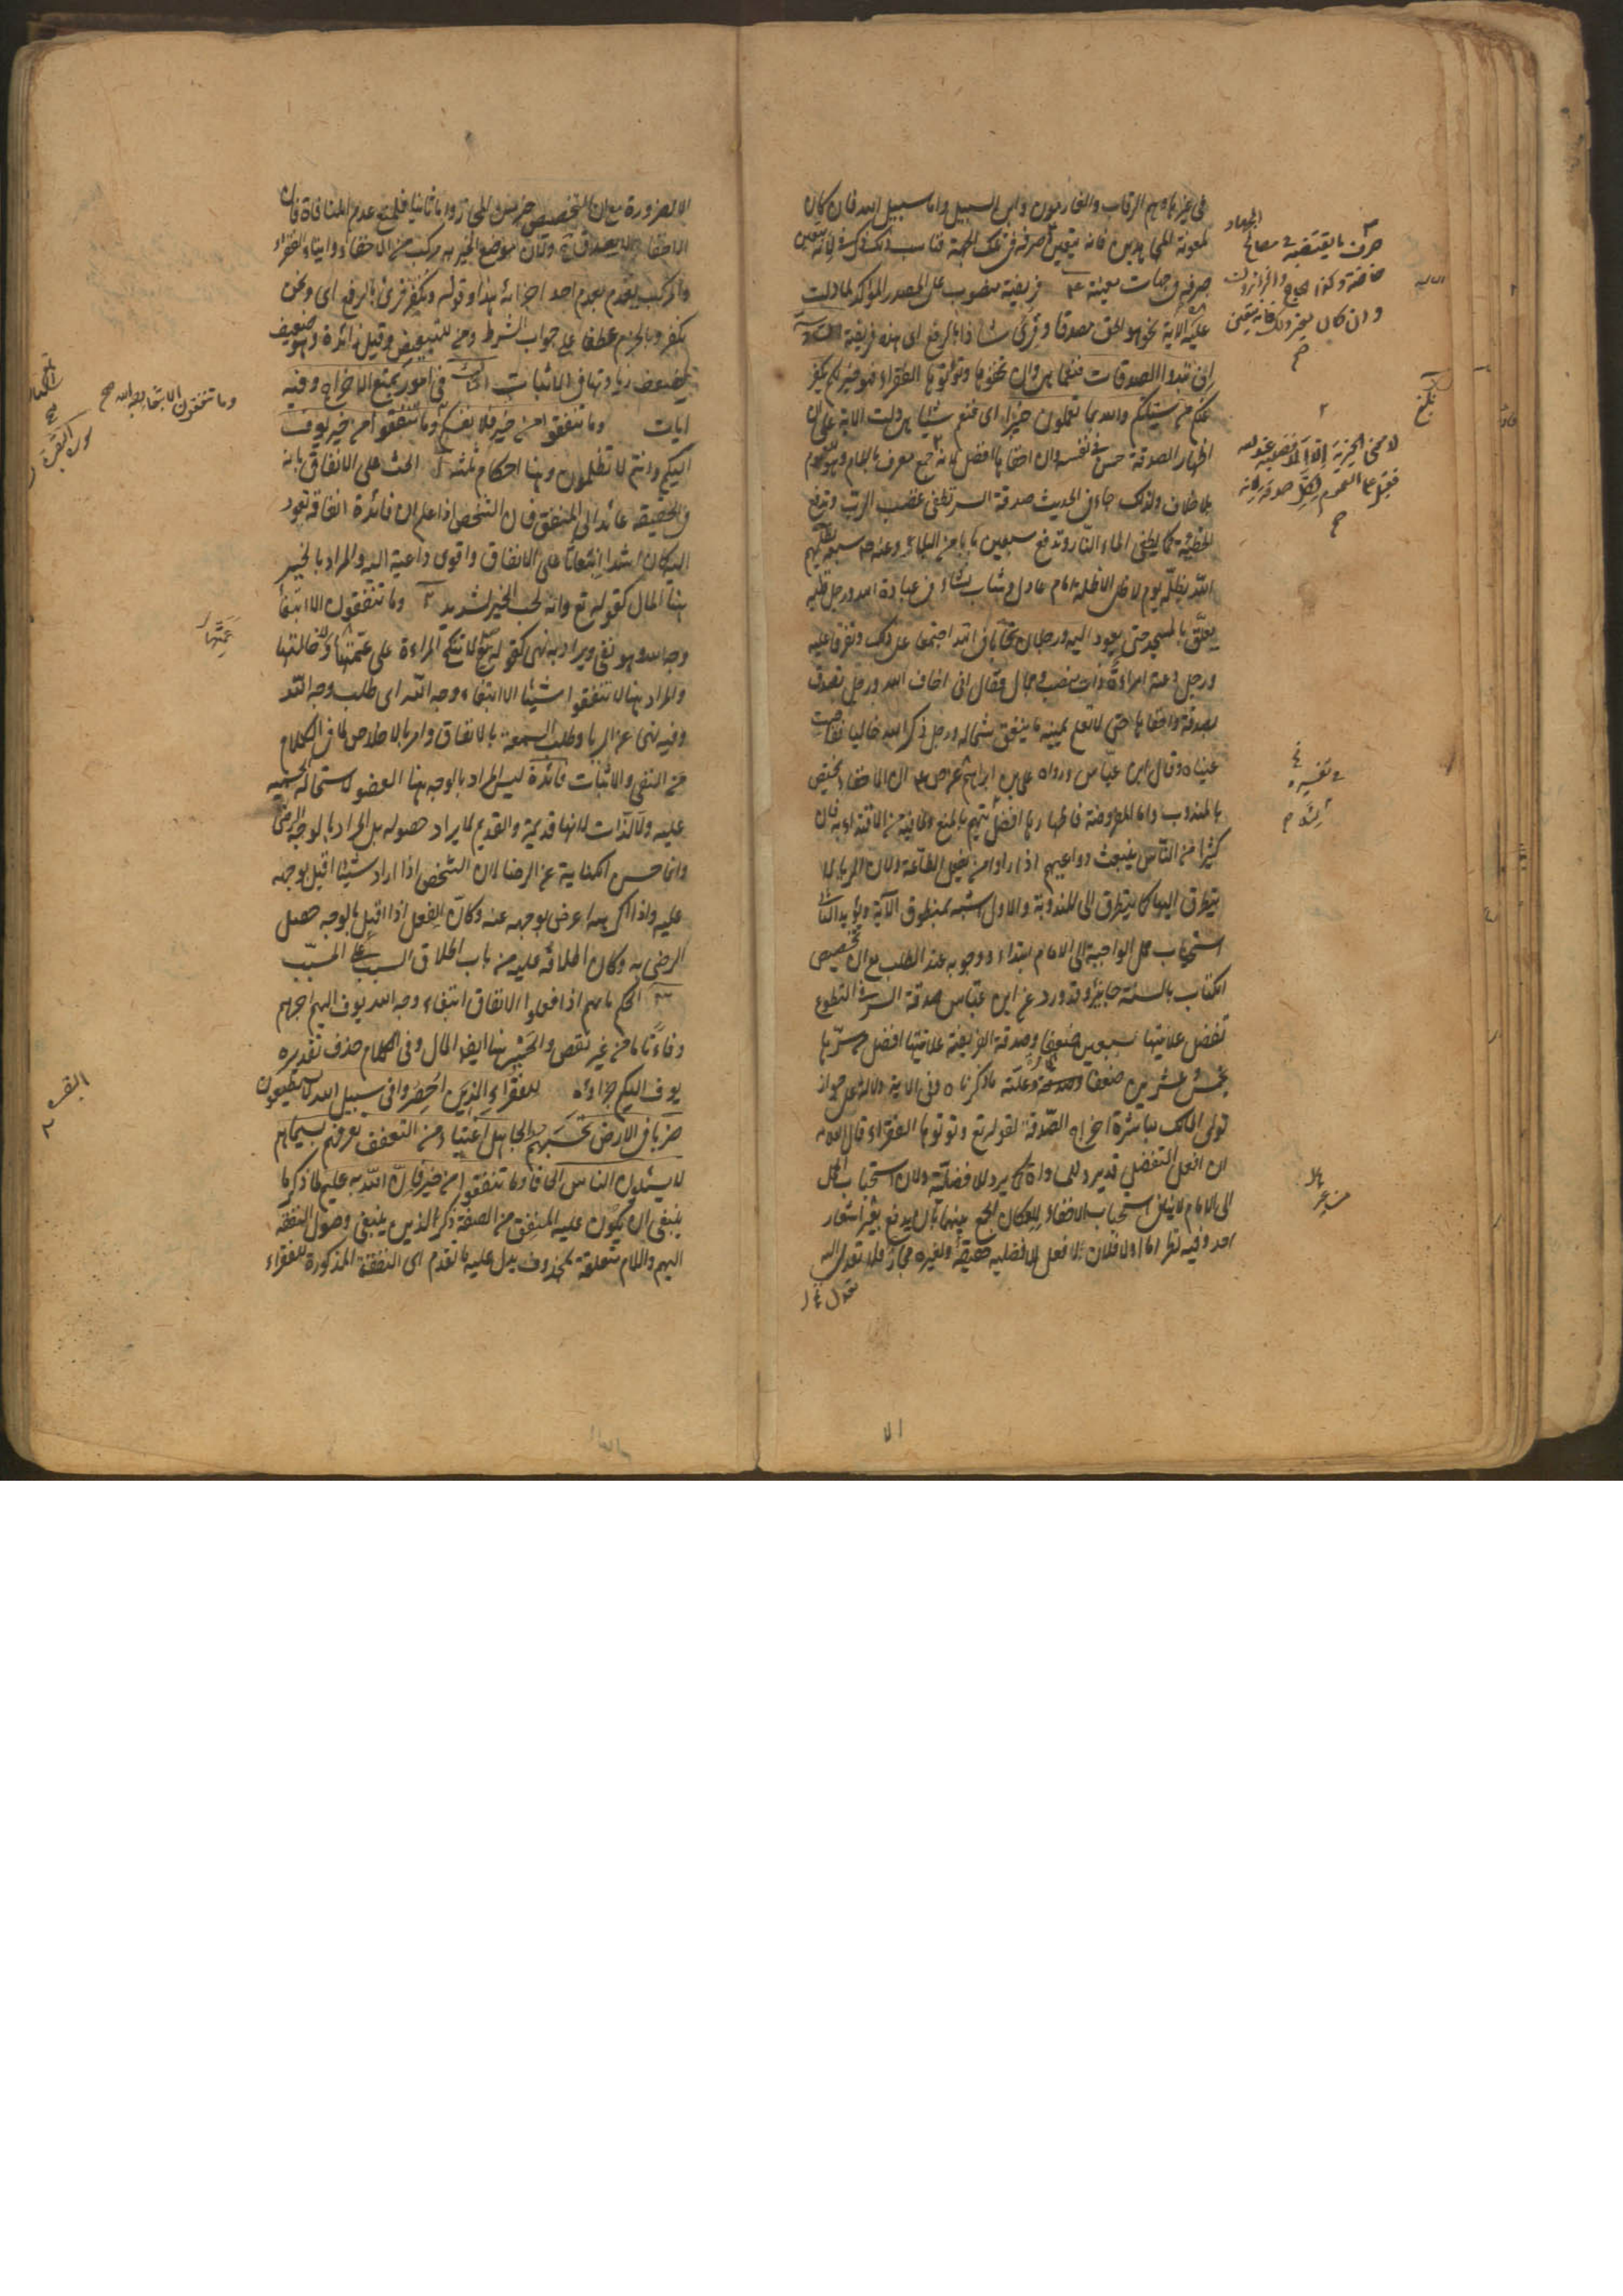 في غيرها وهم الرقاب والغارمون وابن السبيل واما سبيل الله فان كان
لمعونة المجاهدين فانه يتعين صرفه في تلك الجهة فناسب ذلك ذكر في لانه يتعين
صرفه في جهات معينة ٣ فريضة منصوب على المصدر المؤكد لما دلت
عليه الآية نحو هو الحق مصدقا وقرئ شاذا بالرفع اى هذه فريضة
ان تبدوا الصدقات فنعما هي وان تخفوها وتؤتوها الفقراء فهو خير لكم يكفر
عنكم من سيئاتكم والله بما تعملون خبير اى فنعم شيئا هي دلت الآية على ان
اظهار الصدقة حسن في نفسه وان اخفاها افضل لانه جمع معرف باللام وهو للعموم
بلا خلاف ولذلك جاء في الحديث صدقة السر تطفئ غضب الرب وتدفع
الخطيئة كما يطفئ الماء النار وتدفع سبعين بابا من البلاء وعنه ص سبعة يظلهم
الله بظله يوم لا ظل الا ظله امام عادل وشاب نشاء في عبادة الله ورجل قلبه
يعلق بالمسجد حتى يعود اليه ورجلان تحابا في الله اجتمعا على ذلك وتفرقا عليه
ورجل دعته امراءة ذات منصب وجمال فقال اني اخاف الله ورجل تصدق
بصدقة واخفاها حتى لا تعلم يمينه ما ينفق شماله ورجل ذكر الله خاليا ففاضت
عيناه وقال ابن عباس ورواه على بن ابراهيم عن ص ان الاخفاء يختص
بالمندوب واما المفروضة فاظهارها افضل لتهم بالمنع ولما فيه من الاقتداء به فان
كثيرا من الناس ينبعث دواعيهم اذا راوا من يفعل الطاعة ولان الرياء لا
يتطرق اليها كما يتطرق الى المندوبة والاول اشبه بمنطوق الآية ويؤيد الثاني
استحباب حمل الواجبة الى الامام ابتداء ووجوبه عند الطلب مع ان تخصيص
الكتاب بالسنة جايز وقد ورد عن ابن عباس صدقة السر في التطوع
تفضل علانيتها سبعين ضعفا وصدقة الفريضة علانيتها افضل من سرها
بخمس وعشرين ضعفا وعلته ما ذكرناه وفي الآية دلالة على جواز
تولى المالك مباشرة اخراج الصدقة لقوله تع وتؤتوها الفقراء
ان افعل التفضيل قد يرد للمساواة كما يرد للافضلية ولان استحباب الحمل
الى الامام لا ينافي استحباب الاخفاء لامكان الجمع بينهما بان يدفع بغير اشعار
احد وفيه نظر اما اولا فلان افعل للافضلية حقيقة ولغيره مجاز فلا تعدل اليه
الا
صرف ما يقتضيه في مصالح الجهاد
خاصة وكذا الحاج والزائر
وان كان لغير ذلك فانه يتعين
بلغ
في تفسيره
الا لضرورة مع ان التخصيص خير من المجاز واما ثانيا فلمنع عدم المنافاة فان
الاخفاء لا يصدق ولان موضع الخير به مركب من الاخفاء وايتاء الفقراء
والمركب يعدم بعدم احد اجزائه هذا وقوله ونكفر قرئ بالرفع اى ونحن
نكفر وبالجزم عطفا على جواب الشرط ومن للتبعيض وقيل زائدة وهو ضعيف
لضعف زيادتها في الاثبات في امور تتبع الاخراج وفيه
ايات وما تنفقوا من خير فلانفسكم وما تنفقوا من خير يوف
اليكم وانتم لا تظلمون وهنا احكام ثلثة ١ الحث على الانفاق بانه
في الحقيقة عائد الى المنفق فان الشخص اذا علم ان فائدة انفاقه تعود
اليه كان اشد انبعاثا على الانفاق واقوى داعية اليه والمراد بالخير
هنا المال كقوله تع وانه لحب الخير لشديد ٢ وما تنفقون الا ابتغاء
وجه الله وهو نفي ويراد به نهي كقوله ع لا تنكح المراءة على عمتها ولا خالتها
والمراد هنا لا تنفقوا شيئا الا ابتغاء وجه الله اى طلب وجه الله
وفيه نهى عن الرياء وطلب السمعة بالانفاق وامر بالاخلاص لما في الكلام
من النفي والاثبات فائدة ليس المراد بالوجه هنا العضو لاستحالة الجسمية
عليه ولا الذات لانها قديمة والقديم لا يراد حصوله بل المراد بالوجه الرضى
وانما حسن الكناية عن الرضا لان الشخص اذا اراد شيئا اقبل بوجهه
عليه واذا كرهه اعرض بوجهه عنه وكان الفعل اذا اقبل بالوجه حصل
الرضى به وكان اطلاقه عليه من باب اطلاق السبب على المسبب
٣ الحكم بانهم اذا فعلوا الانفاق ابتغاء وجه الله يوف اليهم اجرهم
وفاء تاما من غير نقص والخير هنا ايضا المال وفي الكلام حذف تقديره
يوف اليكم جزاؤه للفقراء الذين احصروا في سبيل الله لا يستطيعون
ضربا في الارض يحسبهم الجاهل اغنياء من التعفف تعرفهم بسيماهم
لا يسئلون الناس الحافا وما تنفقوا من خير فان الله به عليم لما ذكر ما
ينبغي ان يكون عليه المنفق من الصفة ذكر الذين ينبغي وصول النفقة
اليهم واللام متعلقة بمحذوف يدل عليه ما تقدم اى النفقة المذكورة للفقراء
وما تنفقون الا ابتغاء وجه الله
عمتها
البقرة